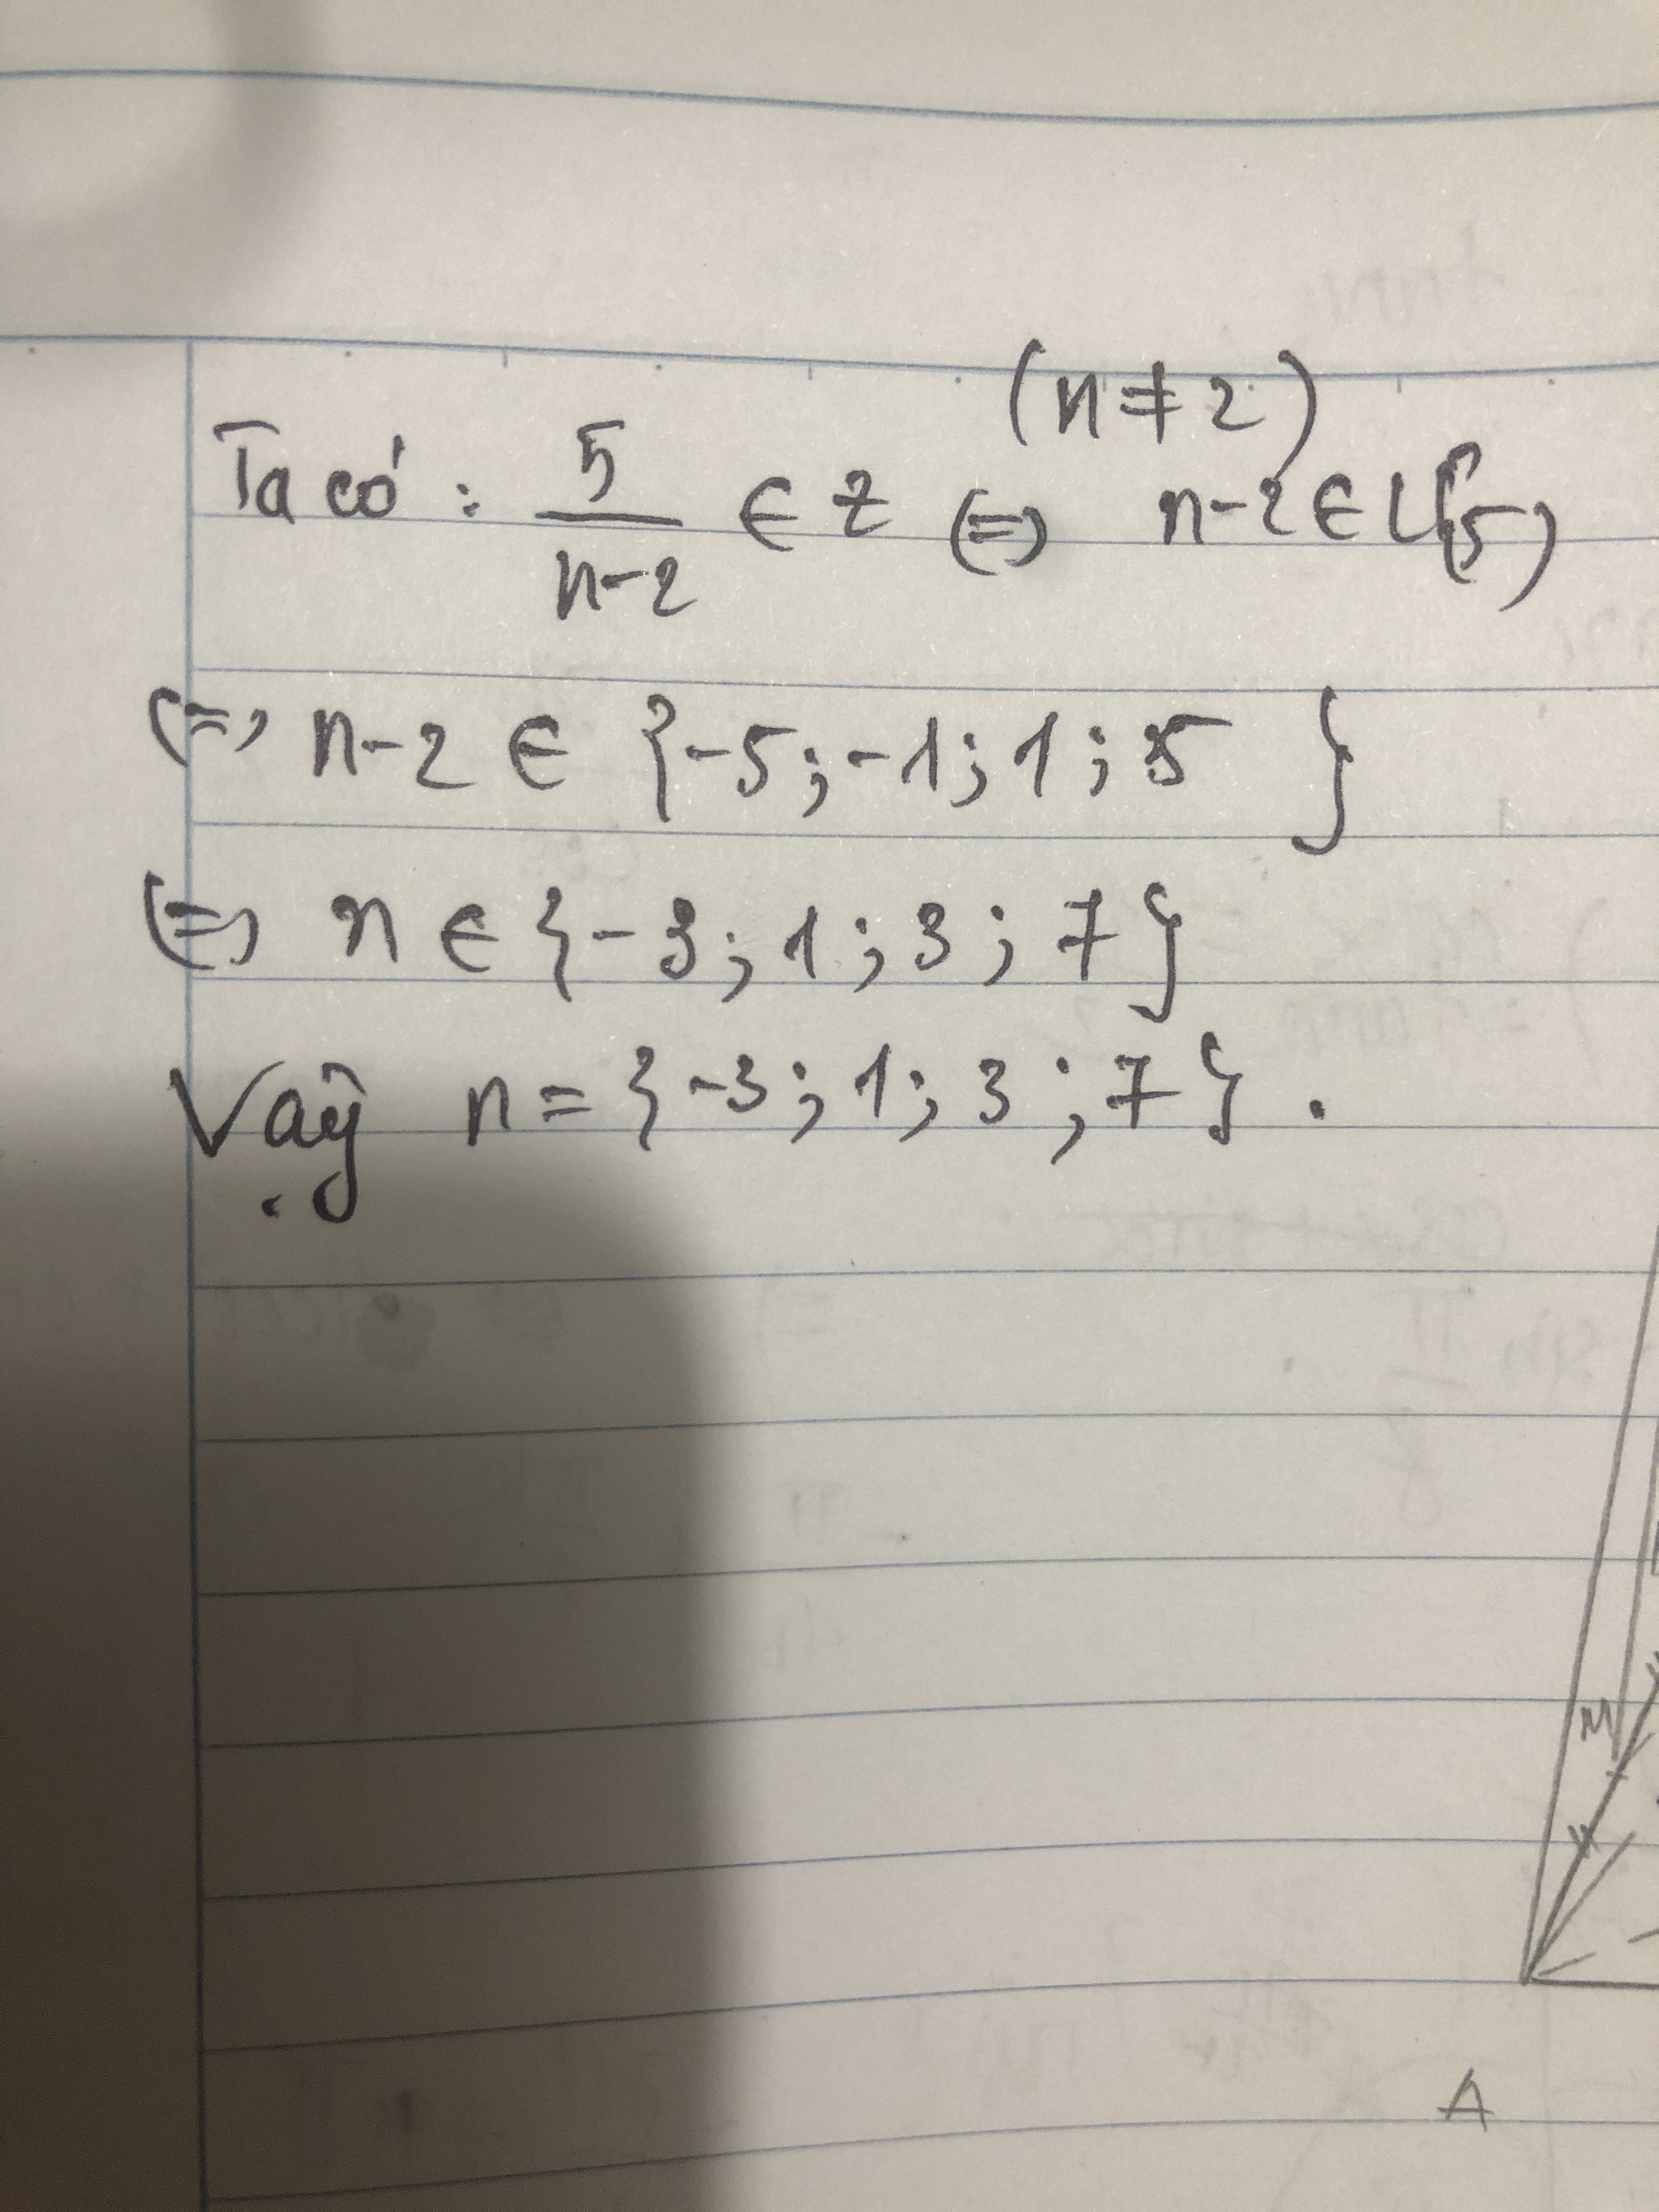 (n ≠ 2)
Ta có : 5/(n-2) ∈ Z (=) n-2 ∈ Ư(5)
(=) n-2 ∈ {-5; -1; 1; 5 }
(=) n ∈ {-3; 1; 3; 7}
Vậy n = {-3; 1; 3; 7}.
M
A